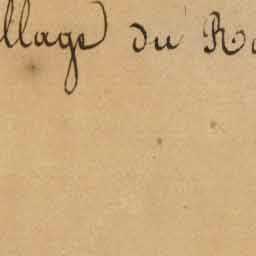 llage du R